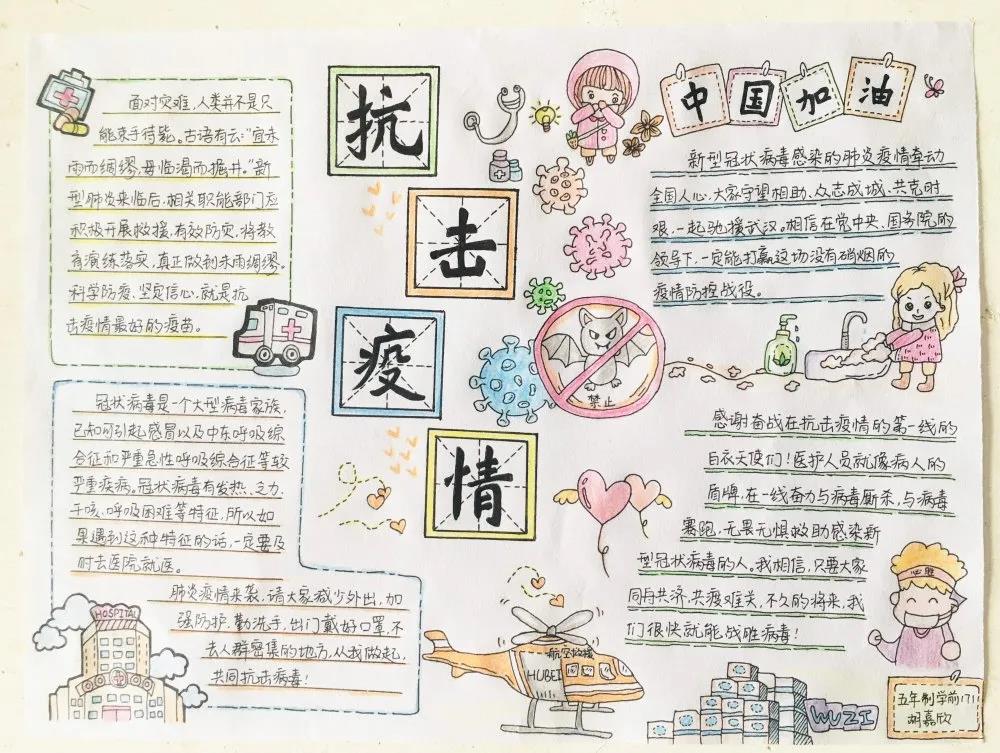 抗
击
疫
情
中国加油
面对灾难,人类并不是只
能束手待毙。古语有云:“宜未
雨而绸缪,毋临渴而掘井。”新
型肺炎来临后,相关职能部门应
积极开展救援,有效防灾,将教
育演练落实,真正做到未雨绸缪。
科学防疫、坚定信心,就是抗
击疫情最好的疫苗。
新型冠状病毒感染的肺炎疫情牵动
全国人心,大家守望相助、众志成城、共克时
艰,一起驰援武汉。相信在党中央、国务院的
领导下,一定能打赢这场没有硝烟的
疫情防控战役。
禁止
冠状病毒是一个大型病毒家族,
已知可引起感冒以及中东呼吸综
合征和严重急性呼吸综合征等较
严重疾病。冠状病毒有发热、乏力、
干咳、呼吸困难等特征,所以如
果遇到这种特征的话,一定要及
时去医院就医。
肺炎疫情来袭,请大家减少外出,加
强防护,勤洗手,出门戴好口罩,不
去人群密集的地方,从我做起,
共同抗击病毒!
感谢奋战在抗击疫情的第一线的
白衣天使们!医护人员就像病人的
盾牌,在一线奋力与病毒厮杀,与病毒
赛跑,无畏无惧救助感染新
型冠状病毒的人。我相信,只要大家
同舟共济,共度难关,不久的将来,我
们很快就能战胜病毒!
必胜
HOSPITAL
航空救援
HUBEI
WUZI
五年制学前1711
胡嘉欣